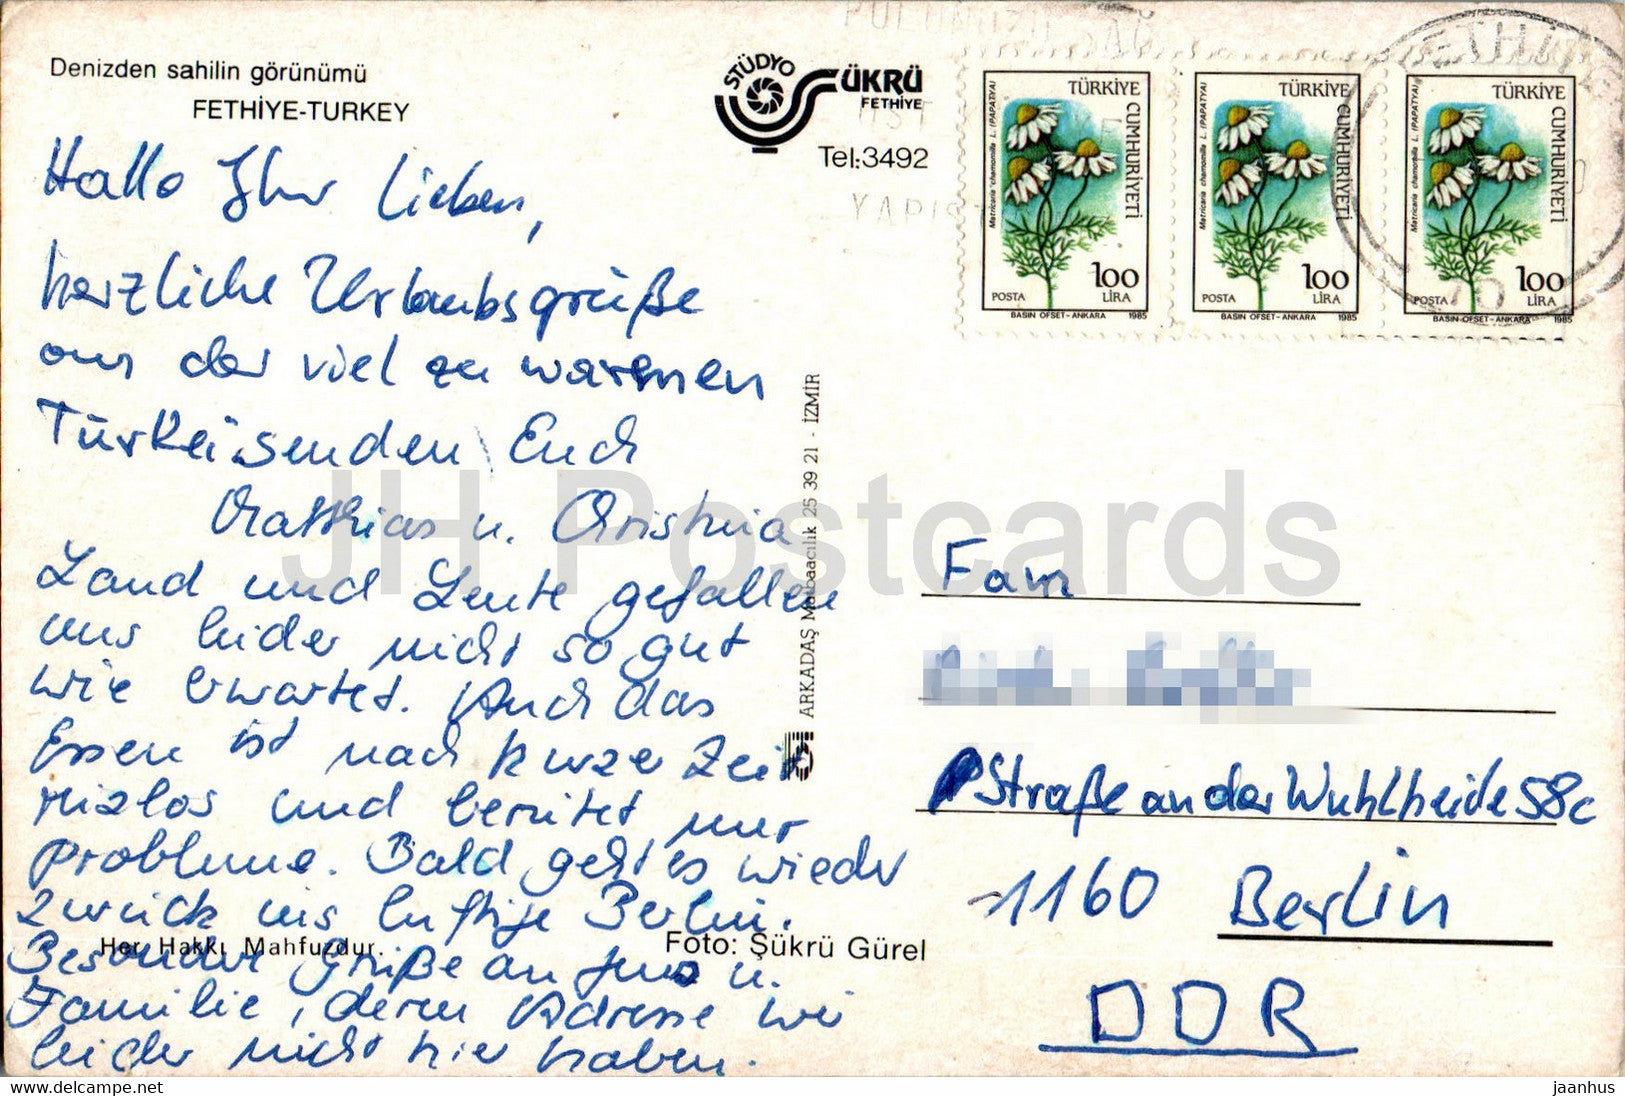 Denizden sahilin görünümü
FETHİYE-TURKEY
STÜDYO ŞÜKRÜ
FETHİYE
Tel:3492
Hallo Ihr Lieben,
herzliche Urlaubsgrüße
aus der viel zu warmen
Türkei senden Euch
Matthias u. Christina
Land und Leute gefallen
uns leider nicht so gut
wie erwartet. Auch das
Essen ist nach kurzer Zeit
reizlos und bereitet nur
Probleme. Bald geht es wieder
zurück ins luftige Berlin.
Besondere Grüße an Jens u.
Familie, deren Adresse wir
leider nicht hier haben.
Her Hakkı Mahfuzdur.
Foto: Şükrü Gürel
ARKADAŞ Matbaacılık 25 39 21 - İZMİR
YAPIŞ
TÜRKİYE CUMHURİYETİ
Matricaria chamomilla L. (PAPATYA)
100 LİRA
POSTA
BASIN OFSET-ANKARA 1985
TÜRKİYE CUMHURİYETİ
Matricaria chamomilla L. (PAPATYA)
100 LİRA
POSTA
BASIN OFSET-ANKARA 1985
TÜRKİYE CUMHURİYETİ
Matricaria chamomilla L. (PAPATYA)
100 LİRA
POSTA
BASIN OFSET-ANKARA 1985
FETHİYE
Fam
Straße an der Wuhlheide 58c
1160 Berlin
DDR
JH Postcards
www.delcampe.net
jaanhus